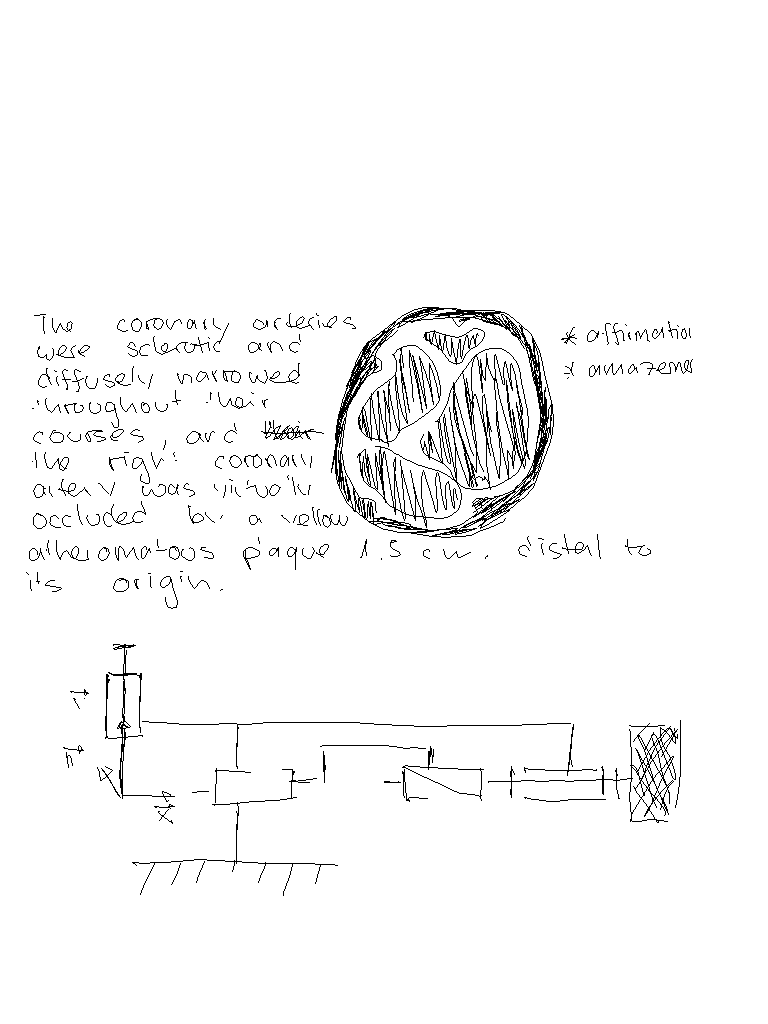 The coronary arteries
were sclerotic and
diffusely narrowed
throughout their
courses, and
the right coronary
artery was virtually
occluded by a yellow
atheromatous plaque 1.5 cm. distal to
its origin.
* affirmation
* amazement